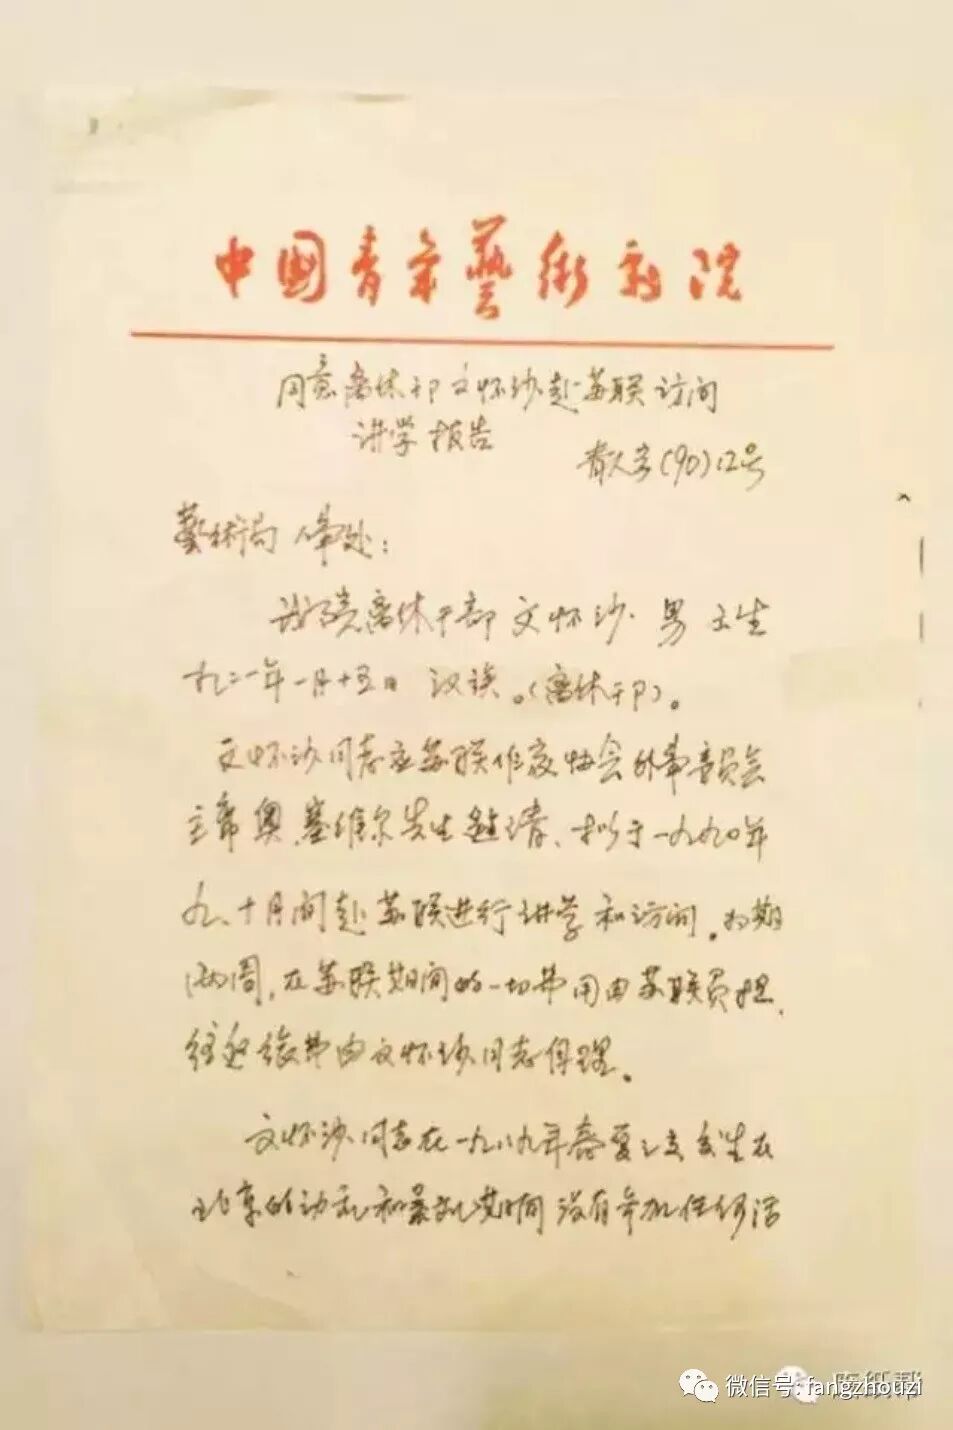 中国青年艺術剧院
同意离休干卩文怀沙赴苏联访问
讲学报告
青人字(90)12号
藝術局人事处：
我院离休干部文怀沙 男 出生
一九二一年一月十五日 汉族。(离休干卩)。
文怀沙同志应苏联作家协会外事委员会
主席奥.塞维尔先生邀请、拟于一九九〇年
九、十月间赴苏联进行讲学和访问。为期
两周，在苏联期间的一切费用由苏联负担，
往返旅费由文怀沙同志自理。
文怀沙同志在一九八九年春夏之交发生在
北京的动乱和暴乱期间没有参加任何活
微信号: fangzhouzi
故纸帮